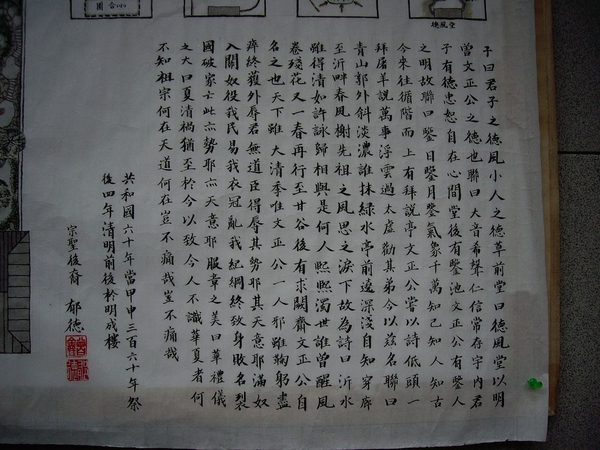 德風堂
子曰君子之德風小人之德草前堂曰德風堂以明
曾文正公之德也聯曰大音希聲仁信常存宇內君
子有德忠恕自在心間堂後有鑒池文正公有鑒人
之明故聯曰鑒日鑒月鑒氣象千萬知己知人知古
今來往循階而上有拜說亭文正公嘗以詩低頭一
拜屠羊說萬事浮雲過太虛勸其弟今以茲名聯曰
青山郭外斜淡濃誰抹綠水亭前遶深淺自知穿廊
至沂畔春風榭先祖之風思之淚下故為詩曰沂水
雖得清如許詠歸相與是何人熙熙濁世誰曾醒風
卷殘花又一春再行至甘谷後有求闕齋文正公自
名之也天下雖大清季唯文正公一人耶雖鞠躬盡
瘁終獲外辱君無道臣得辱其勢耶其天意耶滿奴
入關奴役我民易我衣冠亂我紀綱終致身敗名裂
國破家亡此亦勢耶亦天意耶服章之美曰華禮儀
之大曰夏清禍猶至於今以致今人不識華夏者何
不知祖宗何在天道何在豈不痛哉豈不痛哉
共和國六十年當甲申三百六十年祭
後四年清明前後於明成樓
宗聖後裔 郁德